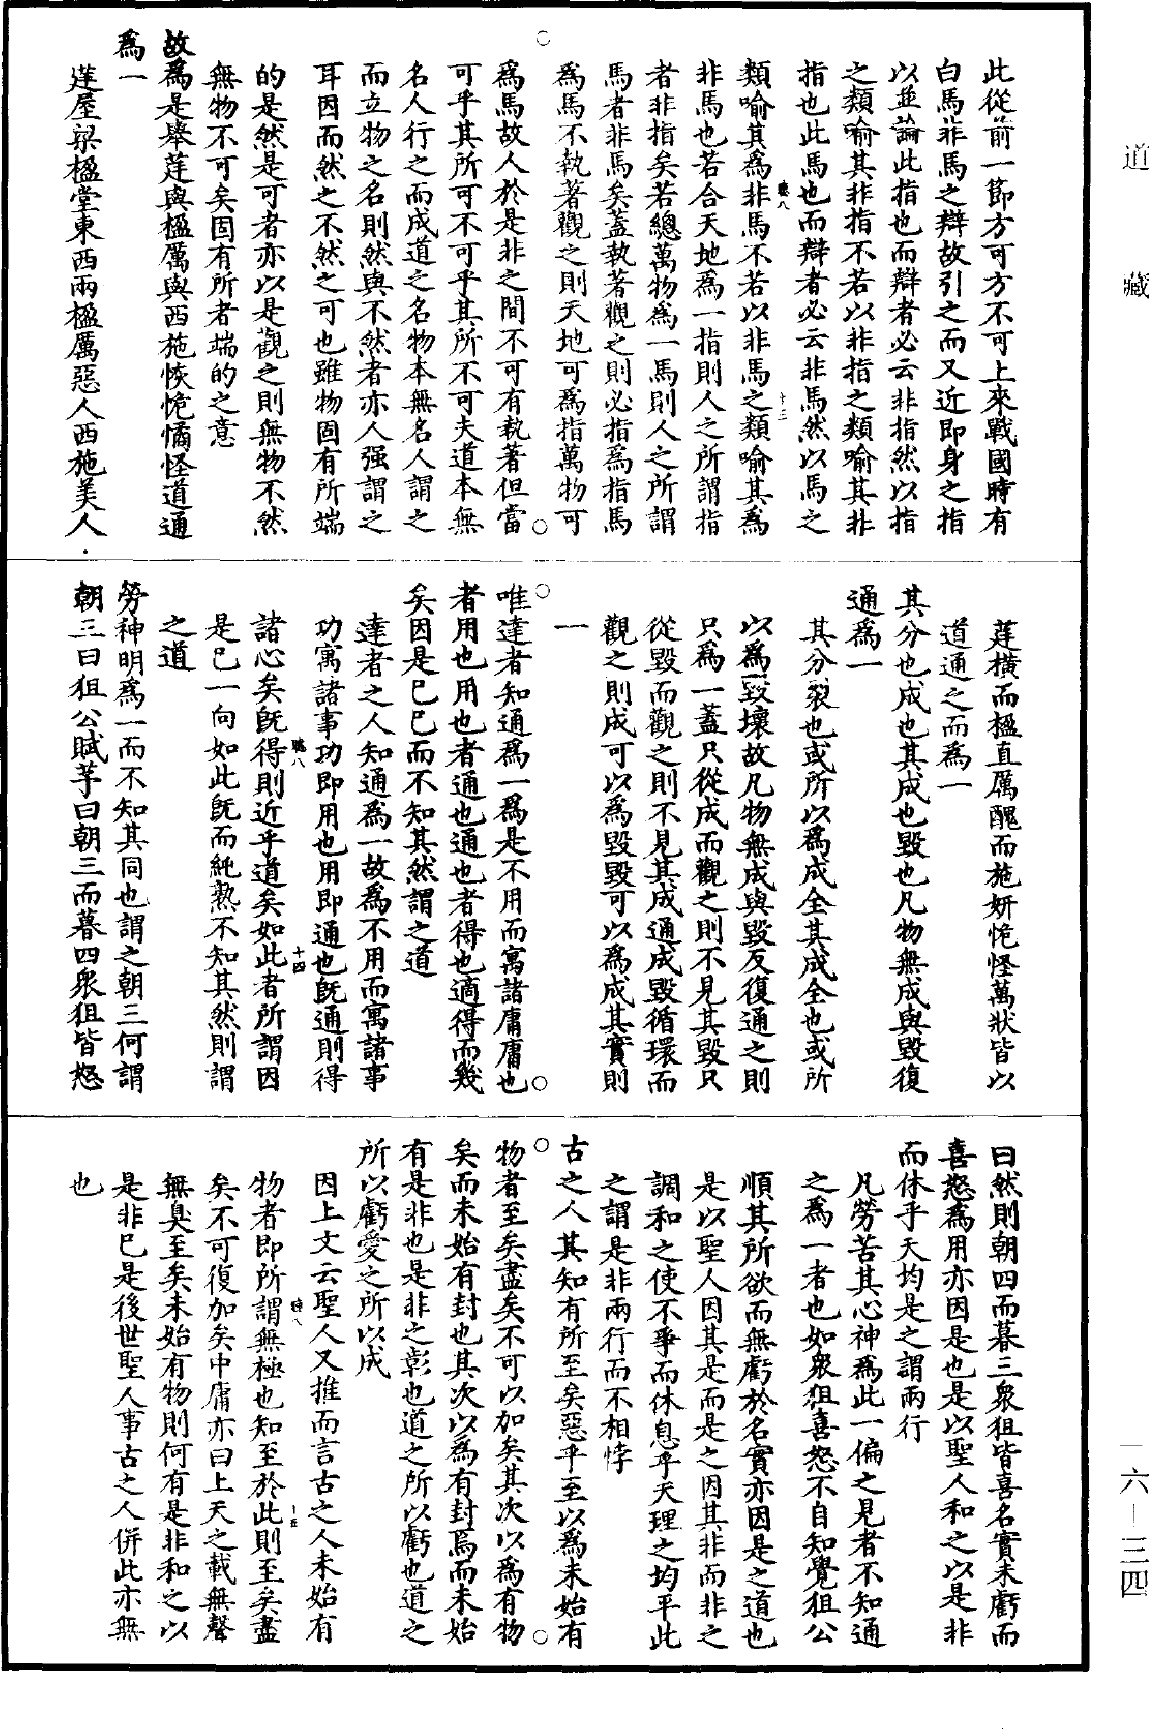 道藏
此從前一節方可方不可上來戰國時有
白馬非馬之辯故引之而又近即身之指
以並論此指也而辯者必云非指然以指
之類喻其非指不若以非指之類喻其非
指也此馬也而辯者必云非馬然以馬之
類喻其為非馬不若以非馬之類喻其為
非馬也若合天地為一指則人之所謂指
者非指矣若總萬物為一馬則人之所謂
馬者非馬矣蓋執著觀之則必指為指馬
為馬不執著觀之則天地可為指萬物可
○
○
為馬故人於是非之間不可有執著但當
可乎其所可不可乎其所不可夫道本無
名人行之而成道之名物本無名人謂之
而立物之名則然與不然者亦人强謂之
耳因而然之不然之可也雖物固有所端
的是然是可者亦以是觀之則無物不然
無物不可矣固有所者端的之意
故為是舉莛與楹厲與西施恢恑憰怪道通
為一
莛屋梁楹堂東西兩楹厲惡人西施美人
莛橫而楹直厲醜而施妍恑怪萬狀皆以
道通之而為一
其分也成也其成也毀也凡物無成與毀復
通為一
其分裂也或所以為成全其成全也或所
以為毀壞故凡物無成與毀反復通之則
只為一蓋只從成而觀之則不見其毀只
從毀而觀之則不見其成通成毀循環而
觀之則成可以為毀毀可以為成其實則
一
○
○
唯達者知通為一為是不用而寓諸庸庸也
者用也用也者通也通也者得也適得而幾
矣因是已已而不知其然謂之道
達者之人知通為一故為不用而寓諸事
功寓諸事功即用也用即通也既通則得
諸心矣既得則近乎道矣如此者所謂因
是已一向如此既而純熟不知其然則謂
之道
勞神明為一而不知其同也謂之朝三何謂
朝三曰狙公賦芧曰朝三而暮四衆狙皆怒
曰然則朝四而暮三衆狙皆喜名實未虧而
喜怒為用亦因是也是以聖人和之以是非
而休乎天均是之謂兩行
凡勞苦其心神為此一偏之見者不知通
之為一者也如衆狙喜怒不自知覺狙公
順其所欲而無虧於名實亦因是之道也
是以聖人因其是而是之因其非而非之
調和之使不爭而休息乎天理之均平此
之謂是非兩行而不相悖
古之人其知有所至矣惡乎至以為未始有
○
○
物者至矣盡矣不可以加矣其次以為有物
矣而未始有封也其次以為有封焉而未始
有是非也是非之彰也道之所以虧也道之
所以虧愛之所以成
因上文云聖人又推而言古之人未始有
物者即所謂無極也知至於此則至矣盡
矣不可復加矣中庸亦曰上天之載無聲
無臭至矣未始有物則何有是非和之以
是非已是後世聖人事古之人併此亦無
也
一六—三四